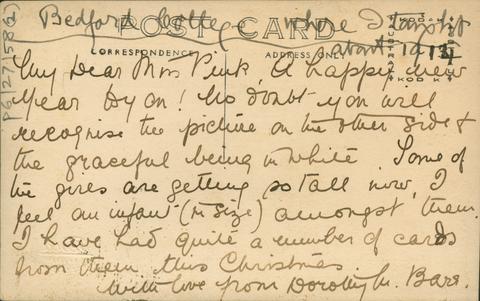 Bedford College where I taught
about 1913
POST CARD
CORRESPONDENCE
ADDRESS ONLY
KODAK
P6/27/58(2)
My Dear Miss Pink, A happy new
year to you! No doubt you will
recognise the picture on the other side &
the graceful being in white. Some of
the girls are getting so tall now, I
feel an infant (in size) amongst them.
I have had quite a number of cards
from them this Christmas.
With love from Dorothy M. Barr.